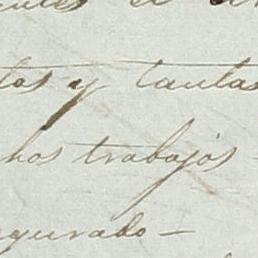 tos y tantas
hos trabajos
gurado —